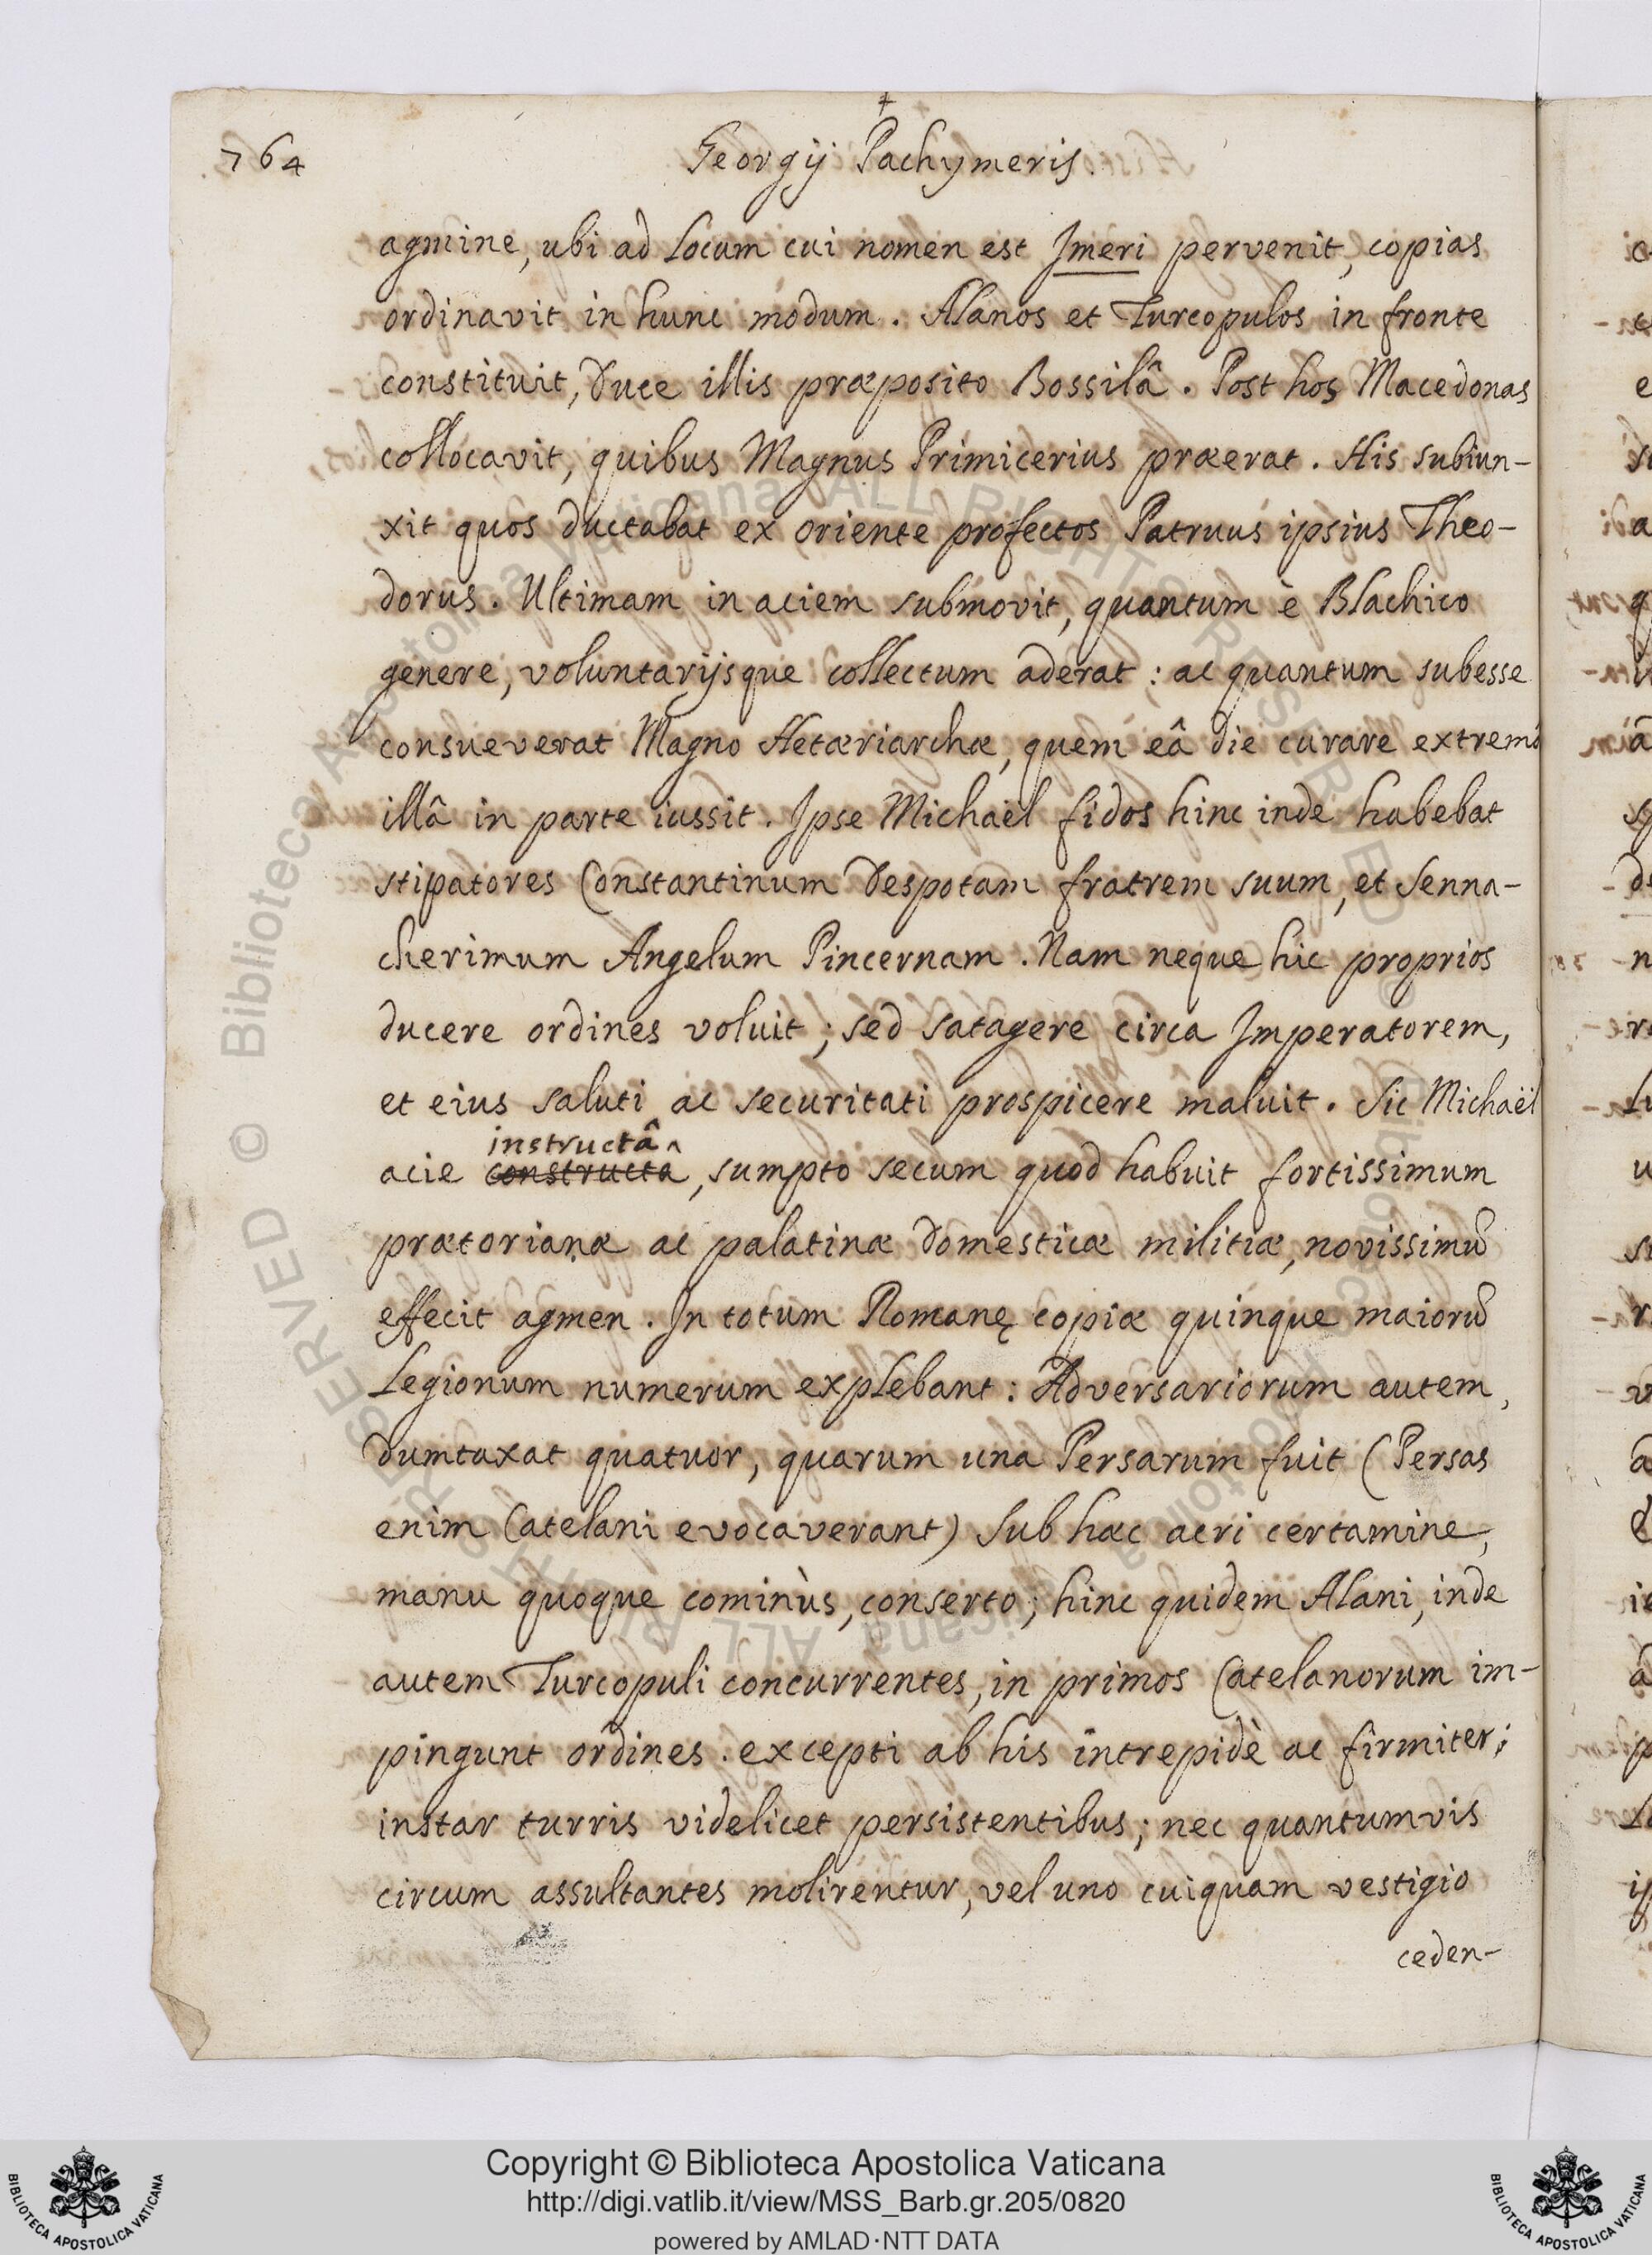 +
764 Georgij Pachymeris.
agmine, ubi ad Locum cui nomen est Jmeri pervenit, copias
ordinavit in hunc modum. Alanos et Turcopulos in fronte
constituit, Duce illis præposito Bossilâ. Post hos Macedonas
collocavit, quibus Magnus Primicerius præerat. His subiun-
xit quos ductabat ex oriente profectos Patruus ipsius Theo-
dorus. Ultimam in aciem submovit, quantum è Blachico
genere, voluntarijsque collectum aderat: ac quantum subesse
consueverat Magno Hetæriarchæ, quem eâ die curare extremâ
illâ in parte iussit. Ipse Michaël fidos hinc inde habebat
stipatores Constantinum Despotam fratrem suum, et Senna-
cherimum Angelum Pincernam. Nam neque hic proprios
ducere ordines voluit; sed satagere circa Imperatorem,
et eius saluti ac securitati prospicere maluit. Sic Michaël
instructâ
acie constructa, sumpto secum quod habuit fortissimum
prætorianæ ac palatinæ Domesticæ militiæ, novissimū
effecit agmen. In totum Romanę copiæ quinque maiorū
Legionum numerum explebant: Adversariorum autem,
Dumtaxat quatuor, quarum una Persarum fuit (Persas
enim Catelani evocaverant) Sub hæc acri certamine,
manu quoque cominùs, conserto; hinc quidem Alani, inde
autem Turcopuli concurrentes, in primos Catelanorum im-
pingunt ordines. excepti ab his intrepidè ac firmiter;
instar turris videlicet persistentibus; nec quantumvis
circum assultantes molirentur, vel uno cuiquam vestigio
ceden-
© Biblioteca Apostolica Vaticana ALL RIGHTS RESERVED
Copyright © Biblioteca Apostolica Vaticana
http://digi.vatlib.it/view/MSS_Barb.gr.205/0820
powered by AMLAD·NTT DATA
BIBLIOTECA APOSTOLICA VATICANA
BIBLIOTECA APOSTOLICA VATICANA